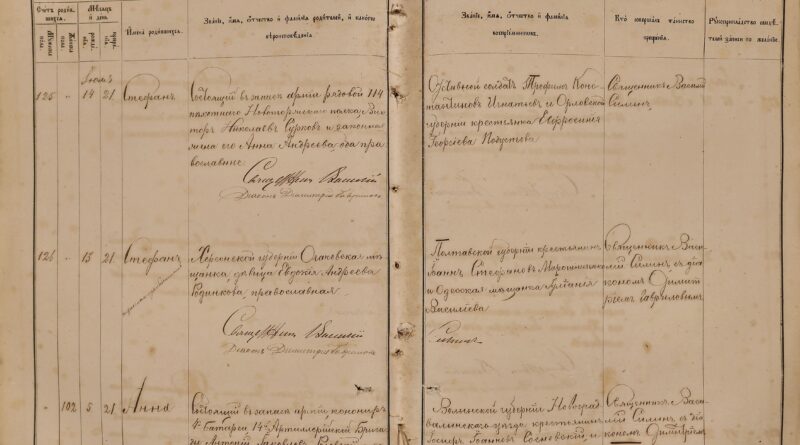 Счетъ родив-
шихся.
Мѣсяцъ
и день.
Мужеска
пола
Женска
пола
рожде-
нія.
креще-
нія.
Имена родившихся.
Званіе, имя, отчество и фамилія родителей, и какого
вѣроисповѣданія.
Званіе, имя, отчество и фамилія
воспріемниковъ.
Кто совершалъ таинство
крещенія.
Рукоприкладство свидѣ-
телей записи по желанію.
125
14
21
Стефанъ
Состоящій въ запасѣ арміи рядовой 114
пѣхотнаго Новоторжскаго полка Вик-
торъ Николаевъ Сурковъ и законная
жена его Анна Андреева оба пра-
вославные
Священникъ Василій
Діаконъ Димитрій
Отставной солдатъ Трофимъ Конс-
тантиновъ Игнатьевъ и Орловской
губерніи крестьянка Евфросинія
Георгіева
Священникъ Василій
Силинъ
126
13
21
Стефанъ
Херсонской губерніи Очаковская мѣ-
щанка дѣвица Евдокія Андреева
Родинкова, православная
Священникъ Василій
Діаконъ Димитрій
Полтавской губерніи крестьянинъ
Іоаннъ Стефановъ
и Одесская мѣщанка
Василіева
Священникъ Васи-
лій Силинъ съ діа-
кономъ Димит-
ріемъ Гавриловымъ
102
5
21
Анна
Состоящій въ запасѣ арміи канониръ
батареи 14й Артиллерійской Брига-
ды Антоній Яковлевъ
Волынской губерніи Новоград-
волынскаго уѣзда крестьянинъ
Іосифъ Іоанновъ Сосновскій и
Священникъ Васи-
лій Силинъ съ діа-
кономъ Димитріемъ